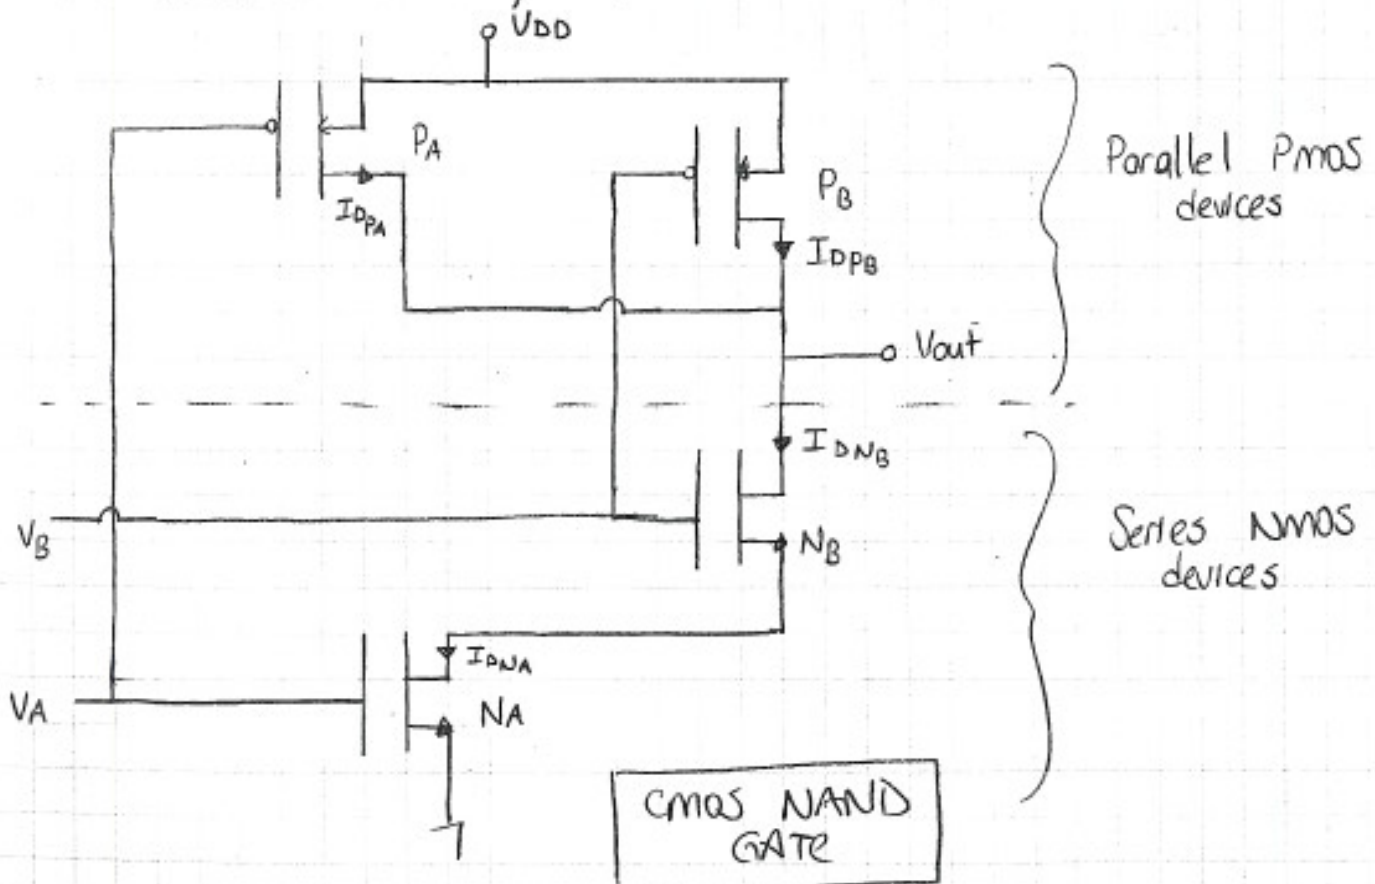 VDD
PA
IDPA
PB
IDPB
Parallel PMOS
devices
Vout
IDNB
VB
NB
Series NMOS
devices
IDNA
VA
NA
CMOS NAND
GATE